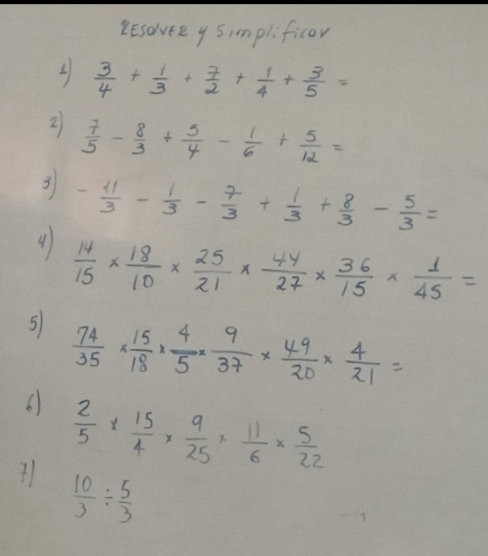 RESOLVER y Simplificar
1) 3/4 + 1/3 + 7/2 + 1/4 + 3/5 =
2) 7/5 - 8/3 + 5/4 - 1/6 + 5/12 =
3) - 11/3 - 1/3 - 7/3 + 1/3 + 8/3 - 5/3 =
4) 14/15 × 18/10 × 25/21 × 44/27 × 36/15 × 1/45 =
5) 74/35 × 15/18 × 4/5 × 9/37 × 49/20 × 4/21 =
6) 2/5 × 15/4 × 9/25 × 11/6 × 5/22
7) 10/3 ÷ 5/3